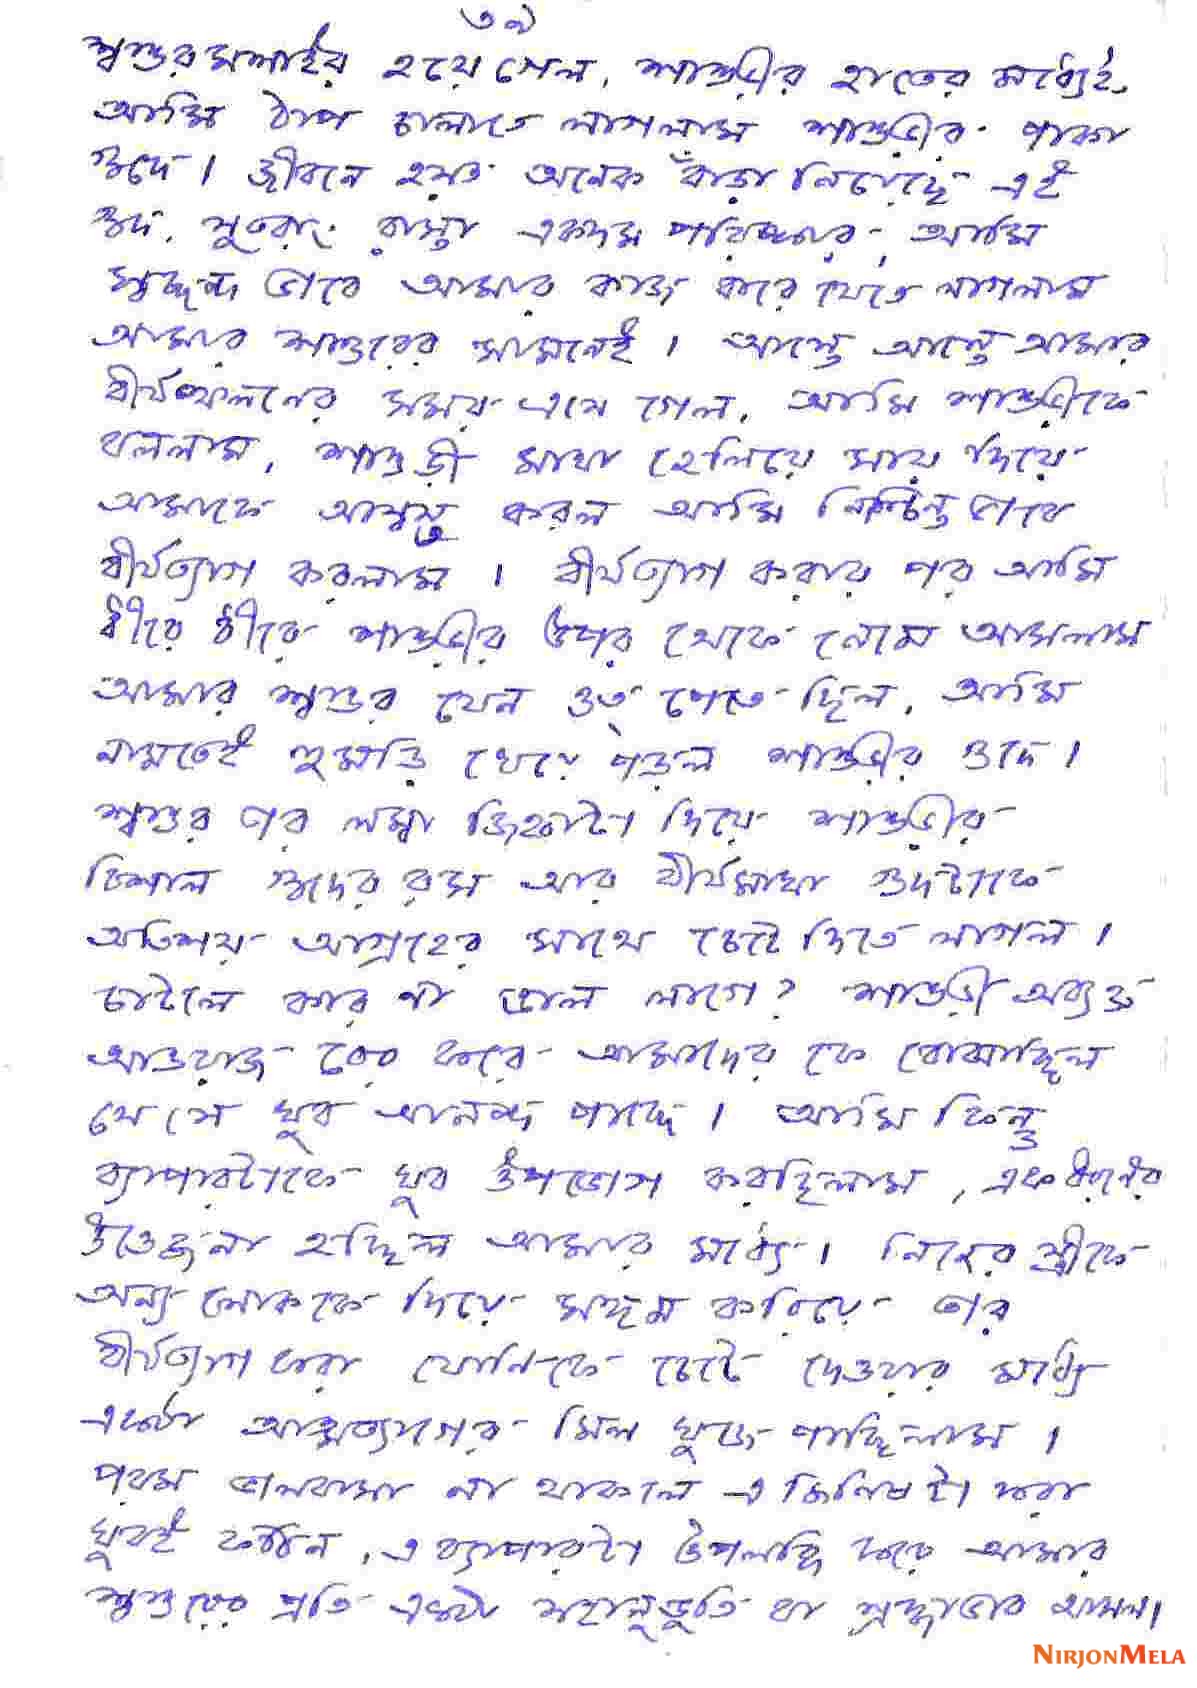 ৩৯
শ্বশুরমশাইর হয়ে গেল, শাশুড়ীর হাতের মধ্যেই,
আমি ঠাপ চালাতে লাগলাম শাশুড়ীর পাকা
গুদে। জীবনে হয়ত অনেক বাঁড়া নিয়েছে এই
গুদ, সুতরাং রাস্তা একদম পরিষ্কার, আমি
স্বাচ্ছন্দ ভাবে আমার কাজ করে যেতে লাগলাম
আমার শ্বশুরের সামনেই। আস্তে আস্তে আমার
বীর্যস্খলনের সময় এসে গেল, আমি শাশুড়ীকে
বললাম, শাশুড়ী মাথা হেলিয়ে সায় দিয়ে
আমাকে আশ্বস্ত করল আমি নিশ্চিন্ত ভাবে
বীর্যত্যাগ করলাম। বীর্যত্যাগ করার পর আমি
ধীরে ধীরে শাশুড়ীর উপর থেকে নেমে আসলাম
আমার শ্বশুর যেন ওত পেতে ছিল, আমি
নামতেই হুমড়ি খেয়ে পড়ল শাশুড়ীর গুদে।
শ্বশুর তার লম্বা জিহ্বাটা দিয়ে শাশুড়ীর
বিশাল গুদের রস আর বীর্যমাখা গুদটাকে
অতিশয় আগ্রহের সাথে চেটে দিতে লাগল।
চাটলে কার না ভাল লাগে? শাশুড়ী অব্যক্ত
আওয়াজ বের করে আমাদের কে বোঝাচ্ছিল
যে সে খুব আনন্দ পাচ্ছে। আমি কিন্তু
ব্যাপারটাকে খুব উপভোগ করছিলাম, এক ধরনের
উত্তেজনা হচ্ছিল আমার মধ্যে। নিজের স্ত্রীকে
অন্য লোককে দিয়ে মর্দন করিয়ে তার
বীর্যত্যাগ করা যোনিকে চেটে দেওয়ার মধ্যে
একটা আত্মত্যাগের মিল খুজে পাচ্ছিলাম।
পরম ভালবাসা না থাকলে এ জিনিষটা করা
খুবই কঠিন, এ ব্যাপারটা উপলব্ধি করে আমার
শ্বশুরের প্রতি একটা সহানুভুতি বা শ্রদ্ধাভাব আসল।
NIRJONMELA